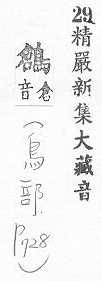 29精嚴新集大藏音
鶬音倉(鳥部.P928)